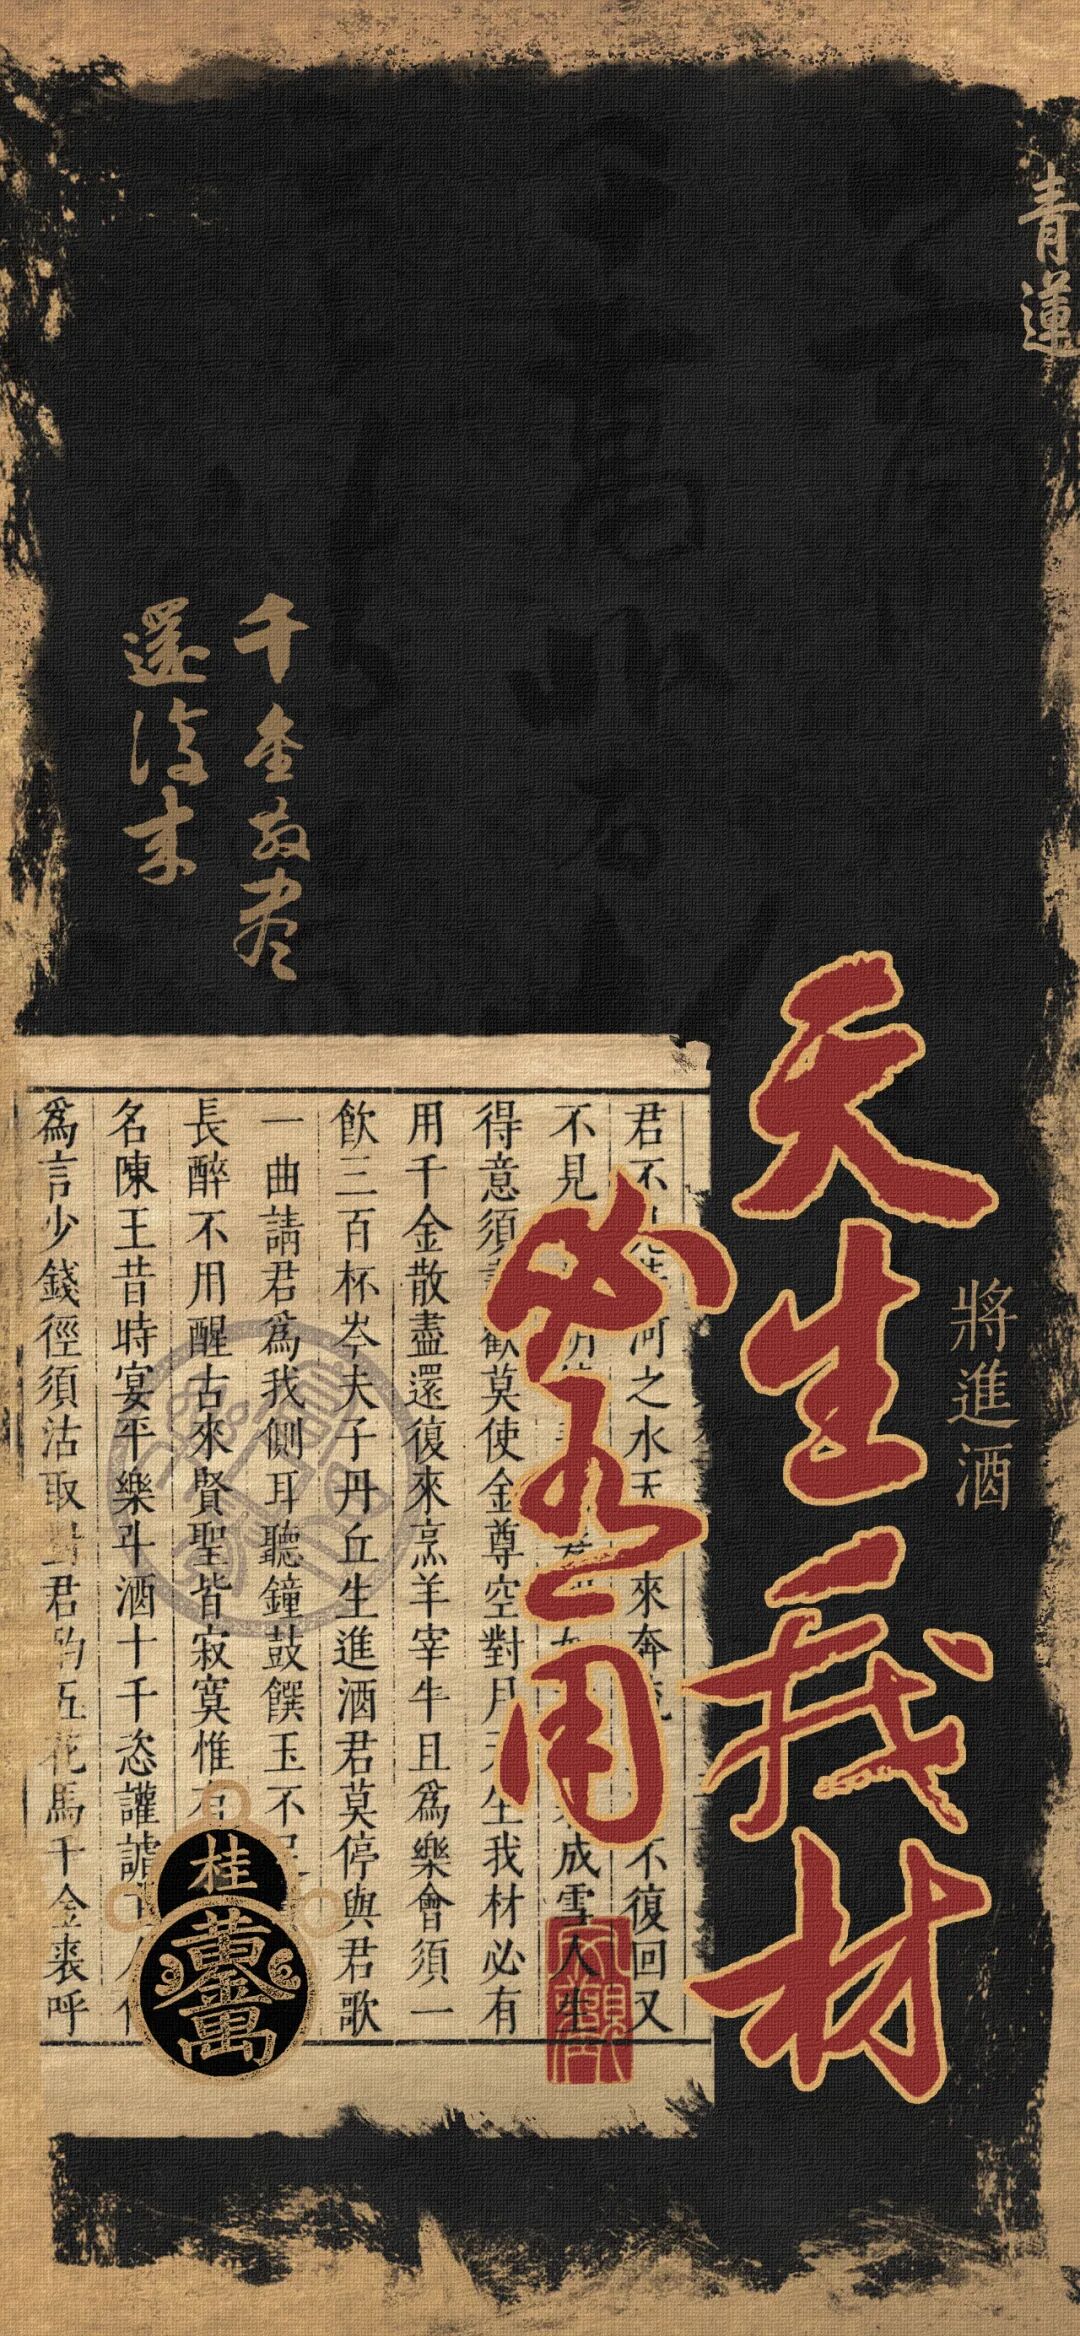 青蓮
千金散尽
還復來
天生我材
必有用
將進酒
君不 河之水天 來奔 不復回又
不見 成雪人生
得意須盡歡莫使金尊空對月天生我材必有
用千金散盡還復來烹羊宰牛且爲樂會須一
飲三百杯岑夫子丹丘生進酒君莫停與君歌
一曲請君爲我側耳聽鐘鼓饌玉不
長醉不用醒古來賢聖皆寂寞惟
名陳王昔時宴平樂斗酒十千恣讙謔
爲言少錢徑須沽取對君酌五花馬千金裘呼
桂
黄金萬